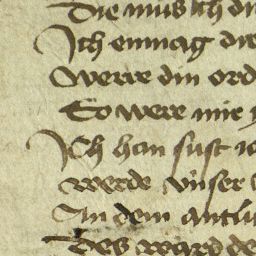 Die muͦs ich di
Ich enmag die
Werre din ord
So were mir
Ich han sust
werde vnser
An dem antlu
Des ward de